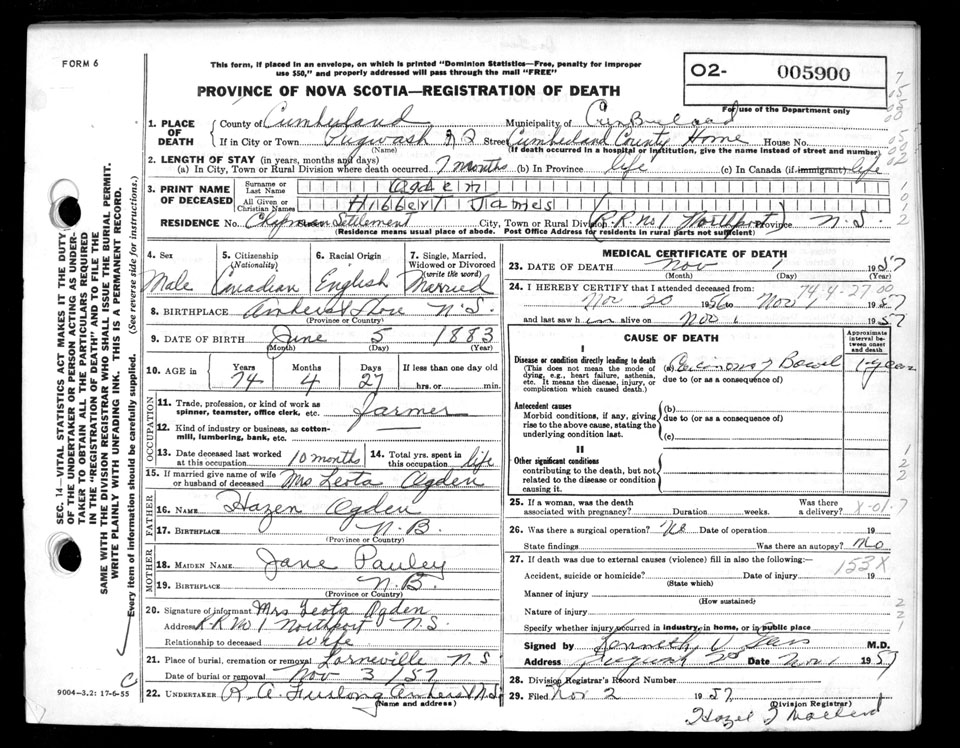 FORM 6
This form, if placed in an envelope, on which is printed "Dominion Statistics—Free, penalty for improper
use $50," and properly addressed will pass through the mail "FREE"
PROVINCE OF NOVA SCOTIA—REGISTRATION OF DEATH
O2- 005900
For use of the Department only
1. PLACE OF DEATH
County of Cumberland Municipality of Cumberland
If in City or Town Pugwash R 2 Street Cumberland County Home House No.
(Name) (If death occurred in a hospital or institution, give the name instead of street and number)
2. LENGTH OF STAY (in years, months and days)
(a) In City, Town or Rural Division where death occurred 7 months (b) In Province life (c) In Canada (if immigrant) life
3. PRINT NAME OF DECEASED
Surname or Last Name Ogden
All Given or Christian Names Hibbert James
RESIDENCE No. Chapman Settlement Street City, Town or Rural Division R.R. No 1 Northport Province N.S.
(Residence means usual place of abode. Post Office Address for residents in rural parts not sufficient)
4. Sex Male
5. Citizenship (Nationality) Canadian
6. Racial Origin English
7. Single, Married, Widowed or Divorced (write the word) Married
8. BIRTHPLACE Amherst Shore N.S.
(Province or Country)
9. DATE OF BIRTH June 5 1883
(Month) (Day) (Year)
10. AGE in Years 74 Months 4 Days 27 If less than one day old
hrs. or min.
OCCUPATION
11. Trade, profession, or kind of work as
spinner, teamster, office clerk, etc. farmer
12. Kind of industry or business, as cotton-
mill, lumbering, bank, etc. —
13. Date deceased last worked
at this occupation 10 months
14. Total yrs. spent in
this occupation life
15. If married give name of wife
or husband of deceased Mrs Leota Ogden
FATHER
16. NAME Hazen Ogden
17. BIRTHPLACE N.B.
(Province or Country)
MOTHER
18. MAIDEN NAME Jane Pauley
19. BIRTHPLACE N.B.
(Province or Country)
20. Signature of informant Mrs Leota Ogden
Address R.R. No 1 Northport N.S.
Relationship to deceased Wife
21. Place of burial, cremation or removal Lorneville N.S
Date of burial or removal Nov 3 / 57
22. UNDERTAKER R. A. Furlong Amherst N.S.
(Name and address)
MEDICAL CERTIFICATE OF DEATH
23. DATE OF DEATH Nov 1 1957
(Month) (Day)
74-4-27-00
24. I HEREBY CERTIFY that I attended deceased from:
Nov 20 1956 to Nov 1 1957
and last saw him alive on Nov 1 1957
CAUSE OF DEATH
Approximate interval between onset and death
I
Disease or condition directly leading to death
(This does not mean the mode of
dying, e.g., heart failure, asthenia,
etc. It means the disease, injury, or
complication which caused death.)
(a) Bowel
due to (or as a consequence of)
Antecedent causes
Morbid conditions, if any, giving
rise to the above cause, stating the
underlying condition last.
(b)
due to (or as a consequence of)
(c)
II
Other significant conditions
contributing to the death, but not
related to the disease or condition
causing it.
25. If a woman, was the death
associated with pregnancy? Duration weeks. Was there a delivery?
X-01-7
26. Was there a surgical operation? No Date of operation 19
State findings Was there an autopsy? No
27. If death was due to external causes (violence) fill in also the following:—
153X
Accident, suicide or homicide? Date of injury 19
(State which)
Manner of injury
(How sustained)
Nature of injury
Specify whether injury occurred in industry, in home, or in public place
Signed by Kenneth M.D.
Address Pugwash Date Nov 1 1957
28. Division Registrar's Record Number
29. Filed Nov 2 1957
(Division Registrar)
Hazel
SEC. 14—VITAL STATISTICS ACT MAKES IT THE DUTY
OF THE UNDERTAKER OR PERSON ACTING AS UNDER-
TAKER TO OBTAIN ALL THE PARTICULARS REQUIRED
IN THE "REGISTRATION OF DEATH" AND TO FILE THE
SAME WITH THE DIVISION REGISTRAR WHO SHALL ISSUE THE BURIAL PERMIT.
WRITE PLAINLY WITH UNFADING INK. THIS IS A PERMANENT RECORD.
Every item of information should be carefully supplied. (See reverse side for instructions.)
9004-3.2: 17-6-55